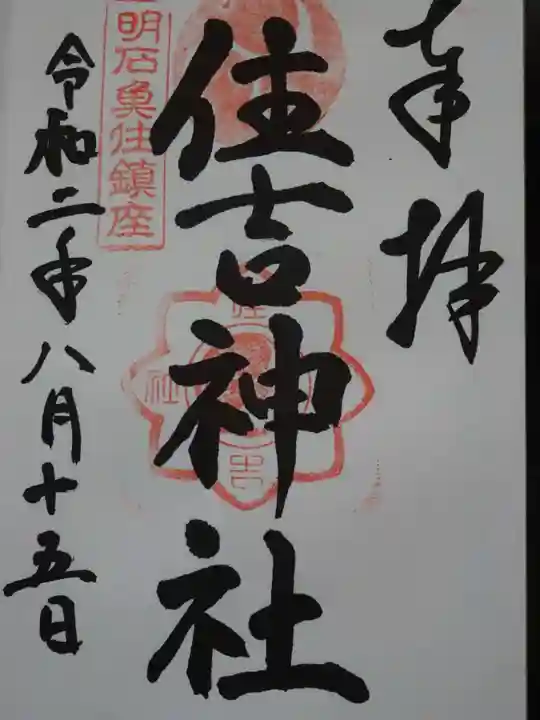 奉拝
住吉神社
明石魚住鎮座
住吉社
令和二年八月十五日